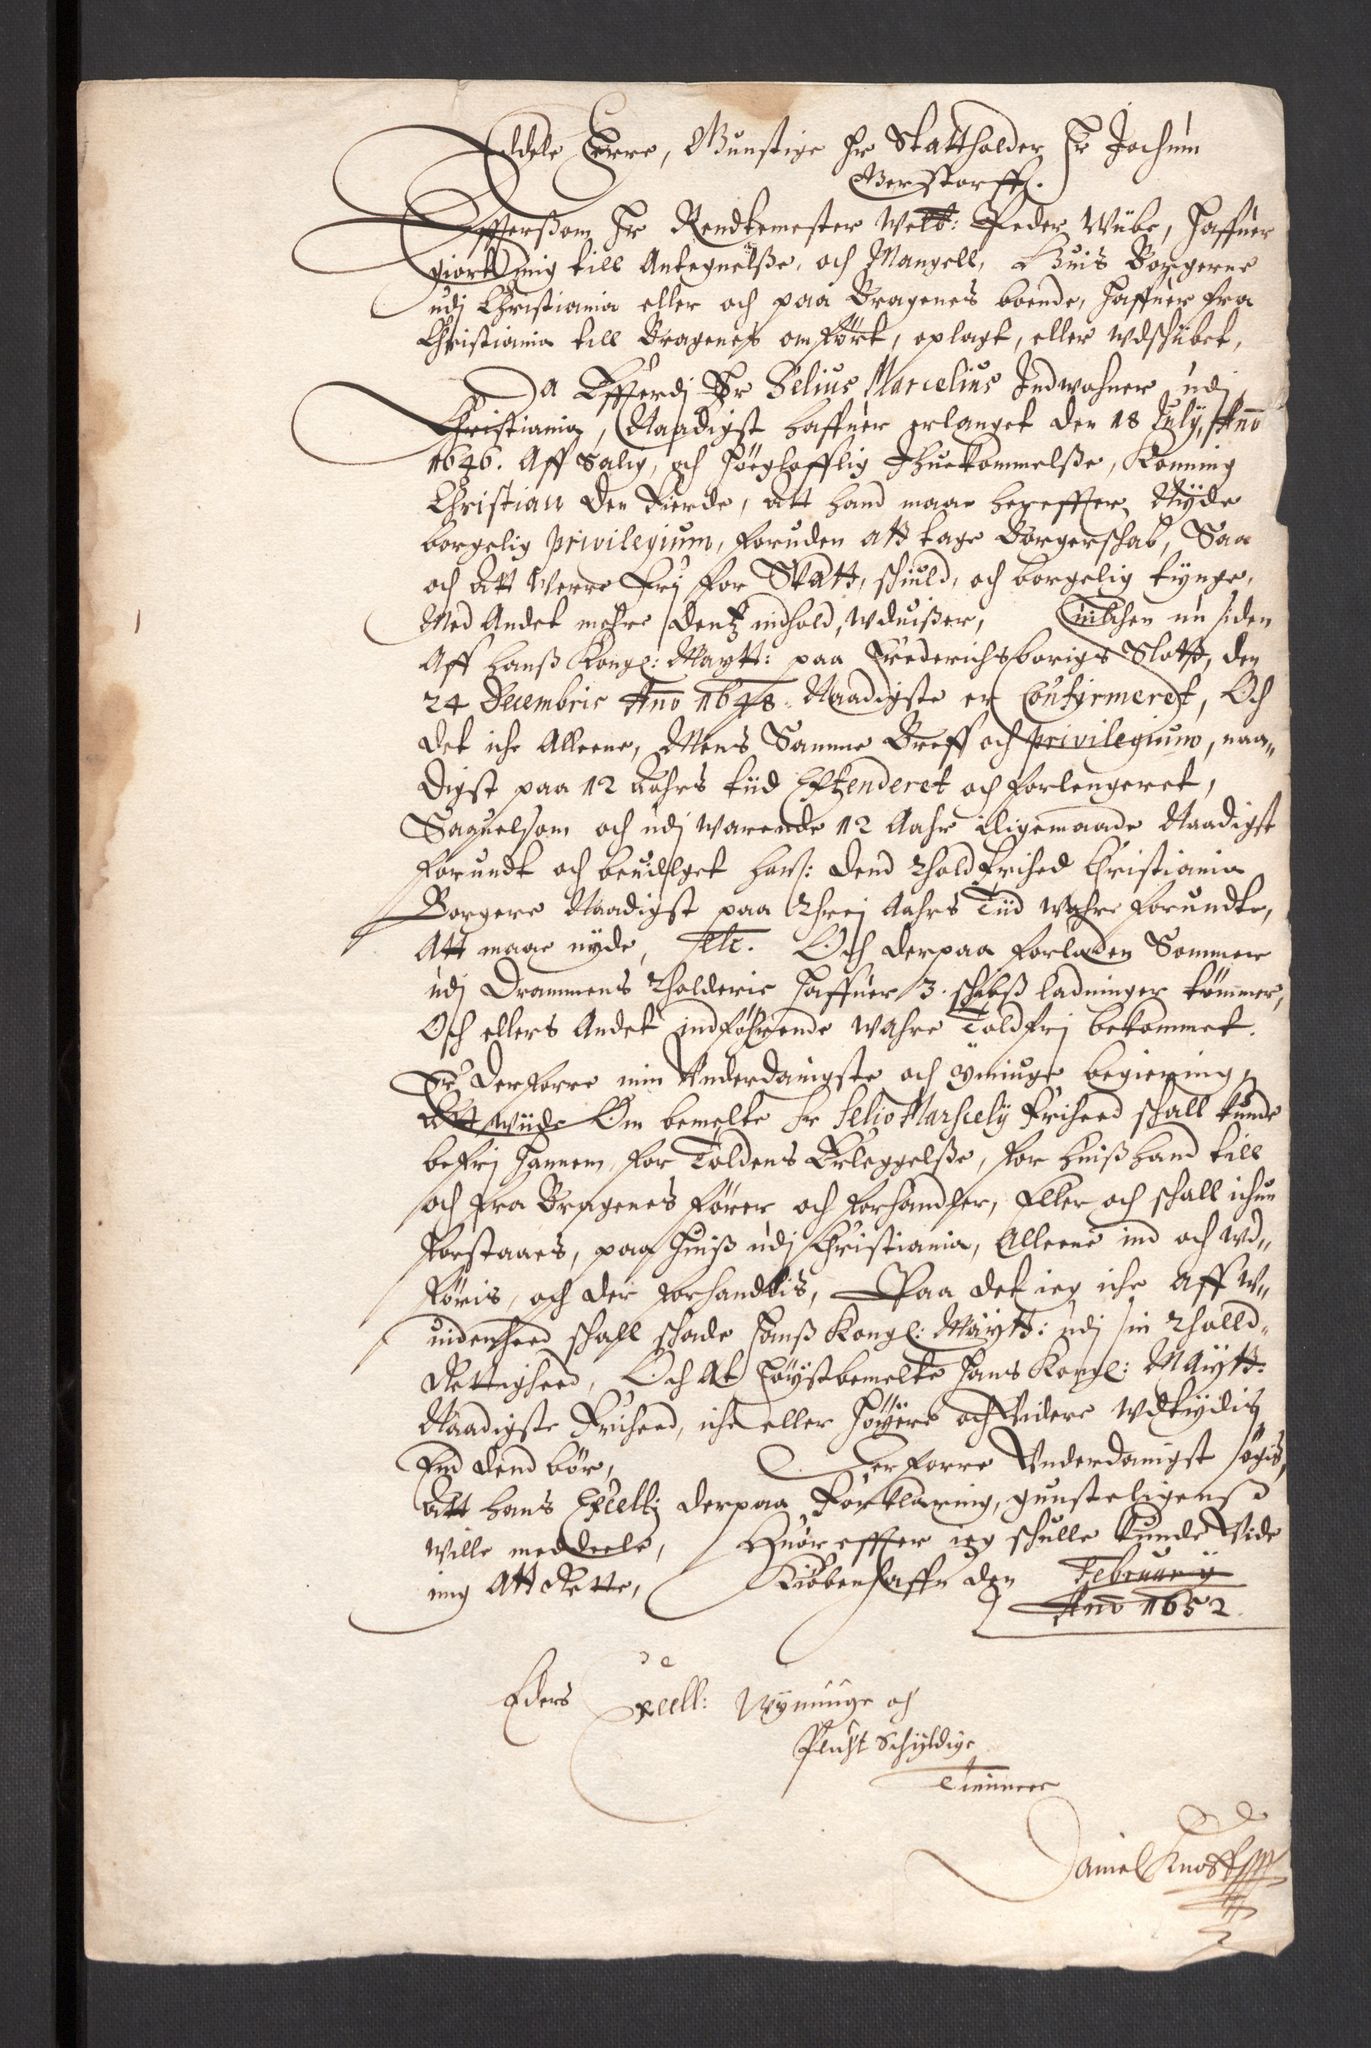 Eddele Herre, Gunstige Hr Stattholder Hr Jochum
Gerstorff.
Effterßom Hr Rendtemester Welb: Peder Wibe, haffuer
giort mig till Antegnelße, och Mangell, Huis Borgerne
udj Christiania eller och paa Bragenes boende, haffuer fra
Christiania till Bragenes omført, oplagt, eller wdschibet,
Da Efferdj Hr Selius Marcelius Indwohner udj
Christiania, Naadigst haffuer erlanget den 18 July, Ano
1646. Aff Salig, och Høylofflig Ihuekommelße, Konning
Christian den Fierde, att hand maae hereffter Nyde
borgelig privilegium, foruden att tage Borgerschab, Saa
och att Verre Frj for Skatt, schuld, och borgelig tynge,
Med Andet mehre dentz indhold, wduißer, huilchen nu siden
Aff hanß Kongl: Maytt: paa Frederichsborigs Slott, den
24 Decembris Ano 1648. Naadigste er Confirmeret, Och
det iche Alleene, Mens Samme Breff och privilegium, naa=
digst paa 12 Aahrs tiid Extenderet och forlengeret,
Saauelsom och udj warende 12 Aahr lligemaade Naadigst
forundt och beuilget han: dend Thold frihed Christiania
Borgere Naadigst paa Threj Aahrs Tiid wahre forundte,
Att maae nyde, etc. Och derpaa forladen Sommer
udj Drammens Tholderie haffuer 3. schibß ladninger tømmer,
Och ellers Andet indføhrende wahre Toldfrj bekommet.
Er derforre min Vnderdanigste och ÿmiuge begiering
Att wiide Om bemelte Hr Selio Marsiely Friheed schall kunde
befrj hannem, for Toldens Erleggelße, for huiß hand till
och fra Bragenes fører och forhandler, Eller och schall ichun
forstaaes, paa huiß udj Christiania, Alleene ind och wd=
føris, och der forhandlis, Paa det ieg iche aff w=
uidenheed schall schade hanß Kongl: Maytt: udj sin Tholld=
Rettigheed, Och At høystbemelte hans Kongl: Maytt:
Naadigste Friheed, iche eller høyere och Videre wdtydis
End dend bør, Derforre Vnderdanigst søgis,
att hans Excell: derpaa Forklaring, gunsteligensd
wille meddeele, Huoreffter ieg schulle kunde Vide
mig Att Rette, Kiøbenhaffn den February
Ano 1652.
Eders Excell: Wÿmiuge och
Plicht Schyldige
Tienner
Daniel Knoff